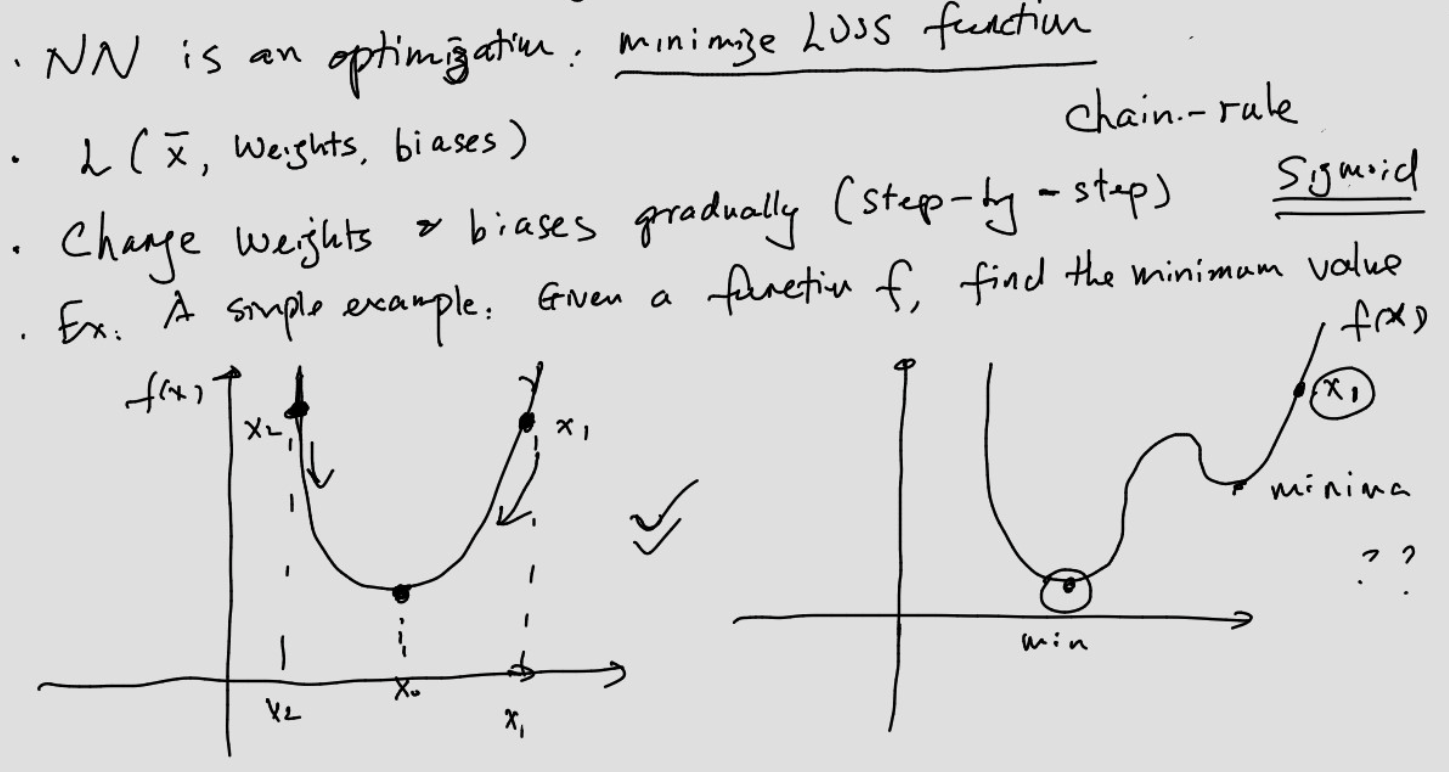 · NN is an optimization. minimize Loss function
chain-rule
· L ( x̄, weights, biases )
Sigmoid
· Change weights & biases gradually (step-by-step)
· Ex: A simple example: Given a function f, find the minimum value
f(x)
f(x)
x2
x1
x1
minima
??
min
x0
x2
x1